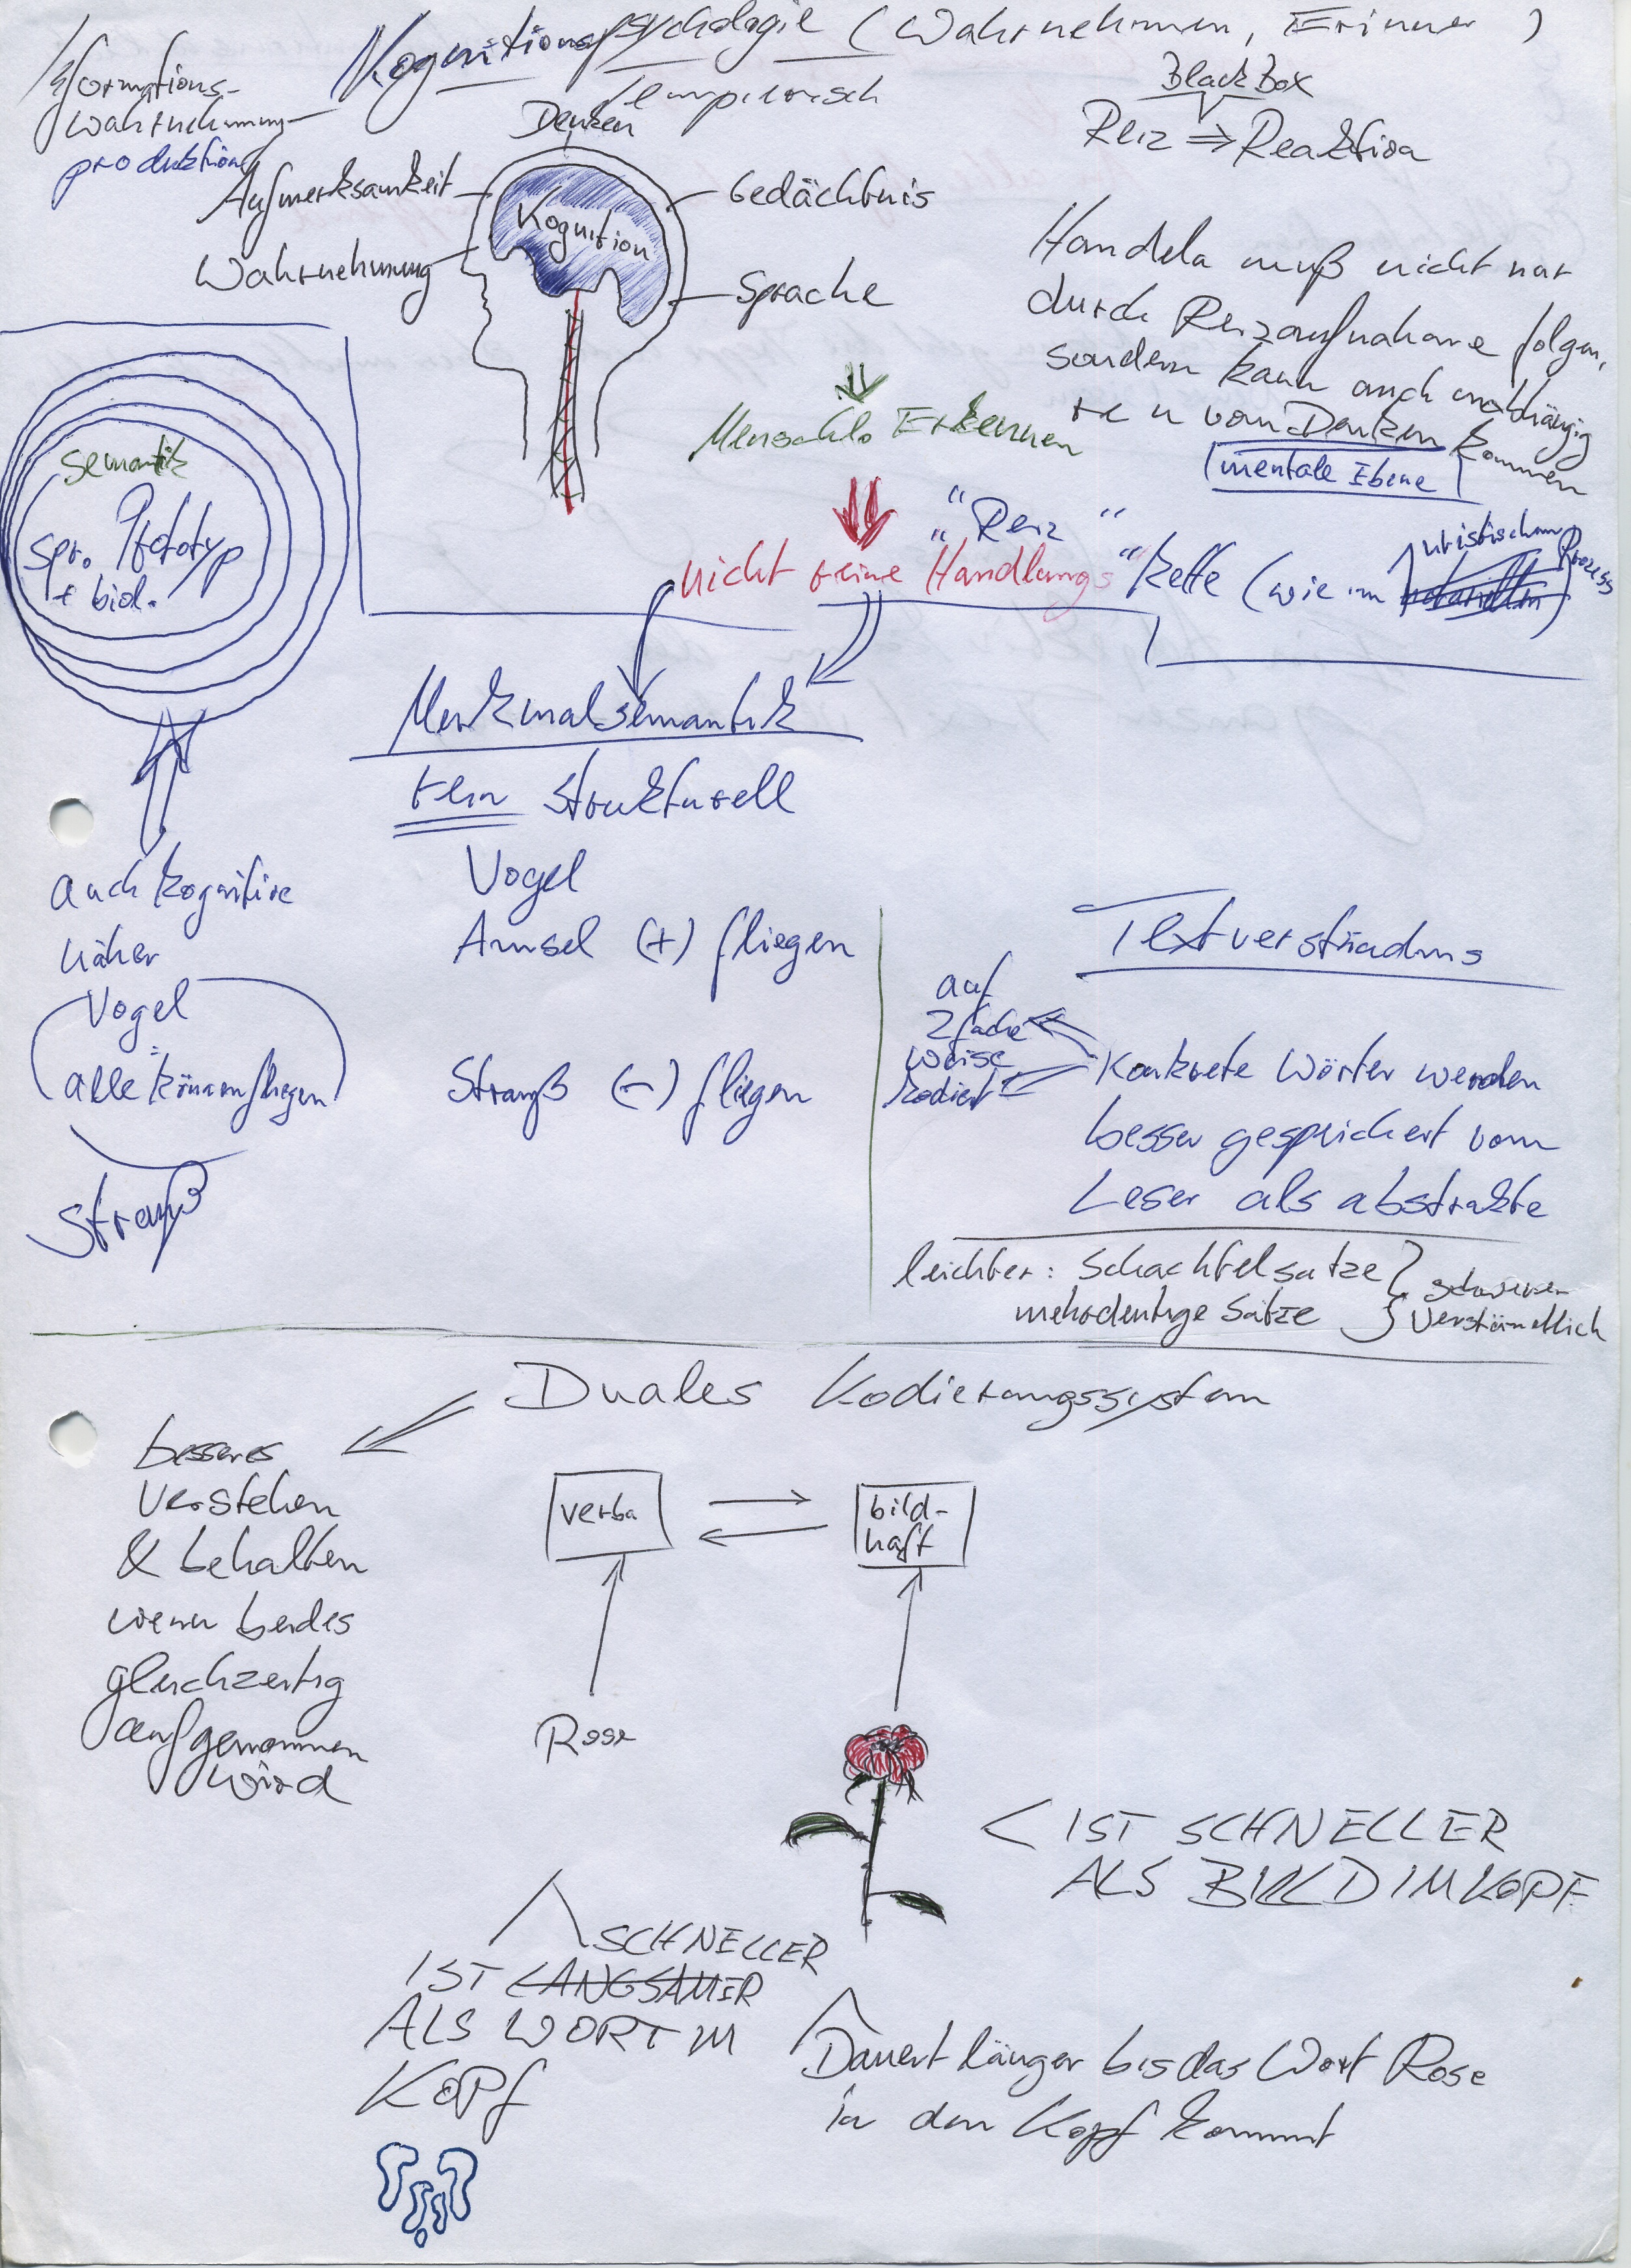 Kognitionspsychologie (Wahrnehmen, Erinner )
empirisch
Informations-
wahrnehmung-
produktion
Denken
Aufmerksamkeit
Wahrnehmung
Kognition
Gedächtnis
Sprache
Black Box
Reiz ⇒ Reaktion
Handeln muß nicht nur
durch Reizaufnahme folgen,
sondern kann auch unabhängig
vom Denken kommen
mentale Ebene
Menschl. Erkennen
"Reiz"
nicht reine Handlungs"kette (wie im juristischen Prozess)
Semantik
spr. Prototyp
+ biol.
auch kognitive
näher
Vogel
=
alle können fliegen
Strauß
Merkmalsemantik
rein strukturell
Vogel
Amsel (+) fliegen
Strauß (-) fliegen
Textverständnis
auf
2fache
weise
kodiert
Konkrete Wörter werden
besser gespeichert vom
Leser als abstrakte
leichter: Schachtelsätze
mehrdeutige Sätze
schwerer
verständlich
Duales Kodierungssystem
besseres
verstehen
& behalten
wenn beides
gleichzeitig
aufgenommen
wird
verba
bild-
haft
Rose
< IST SCHNELLER
ALS BILD IM KOPF
SCHNELLER
IST LANGSAMER
ALS WORT IM
KOPf
Dauert länger bis das Wort Rose
in den Kopf kommt